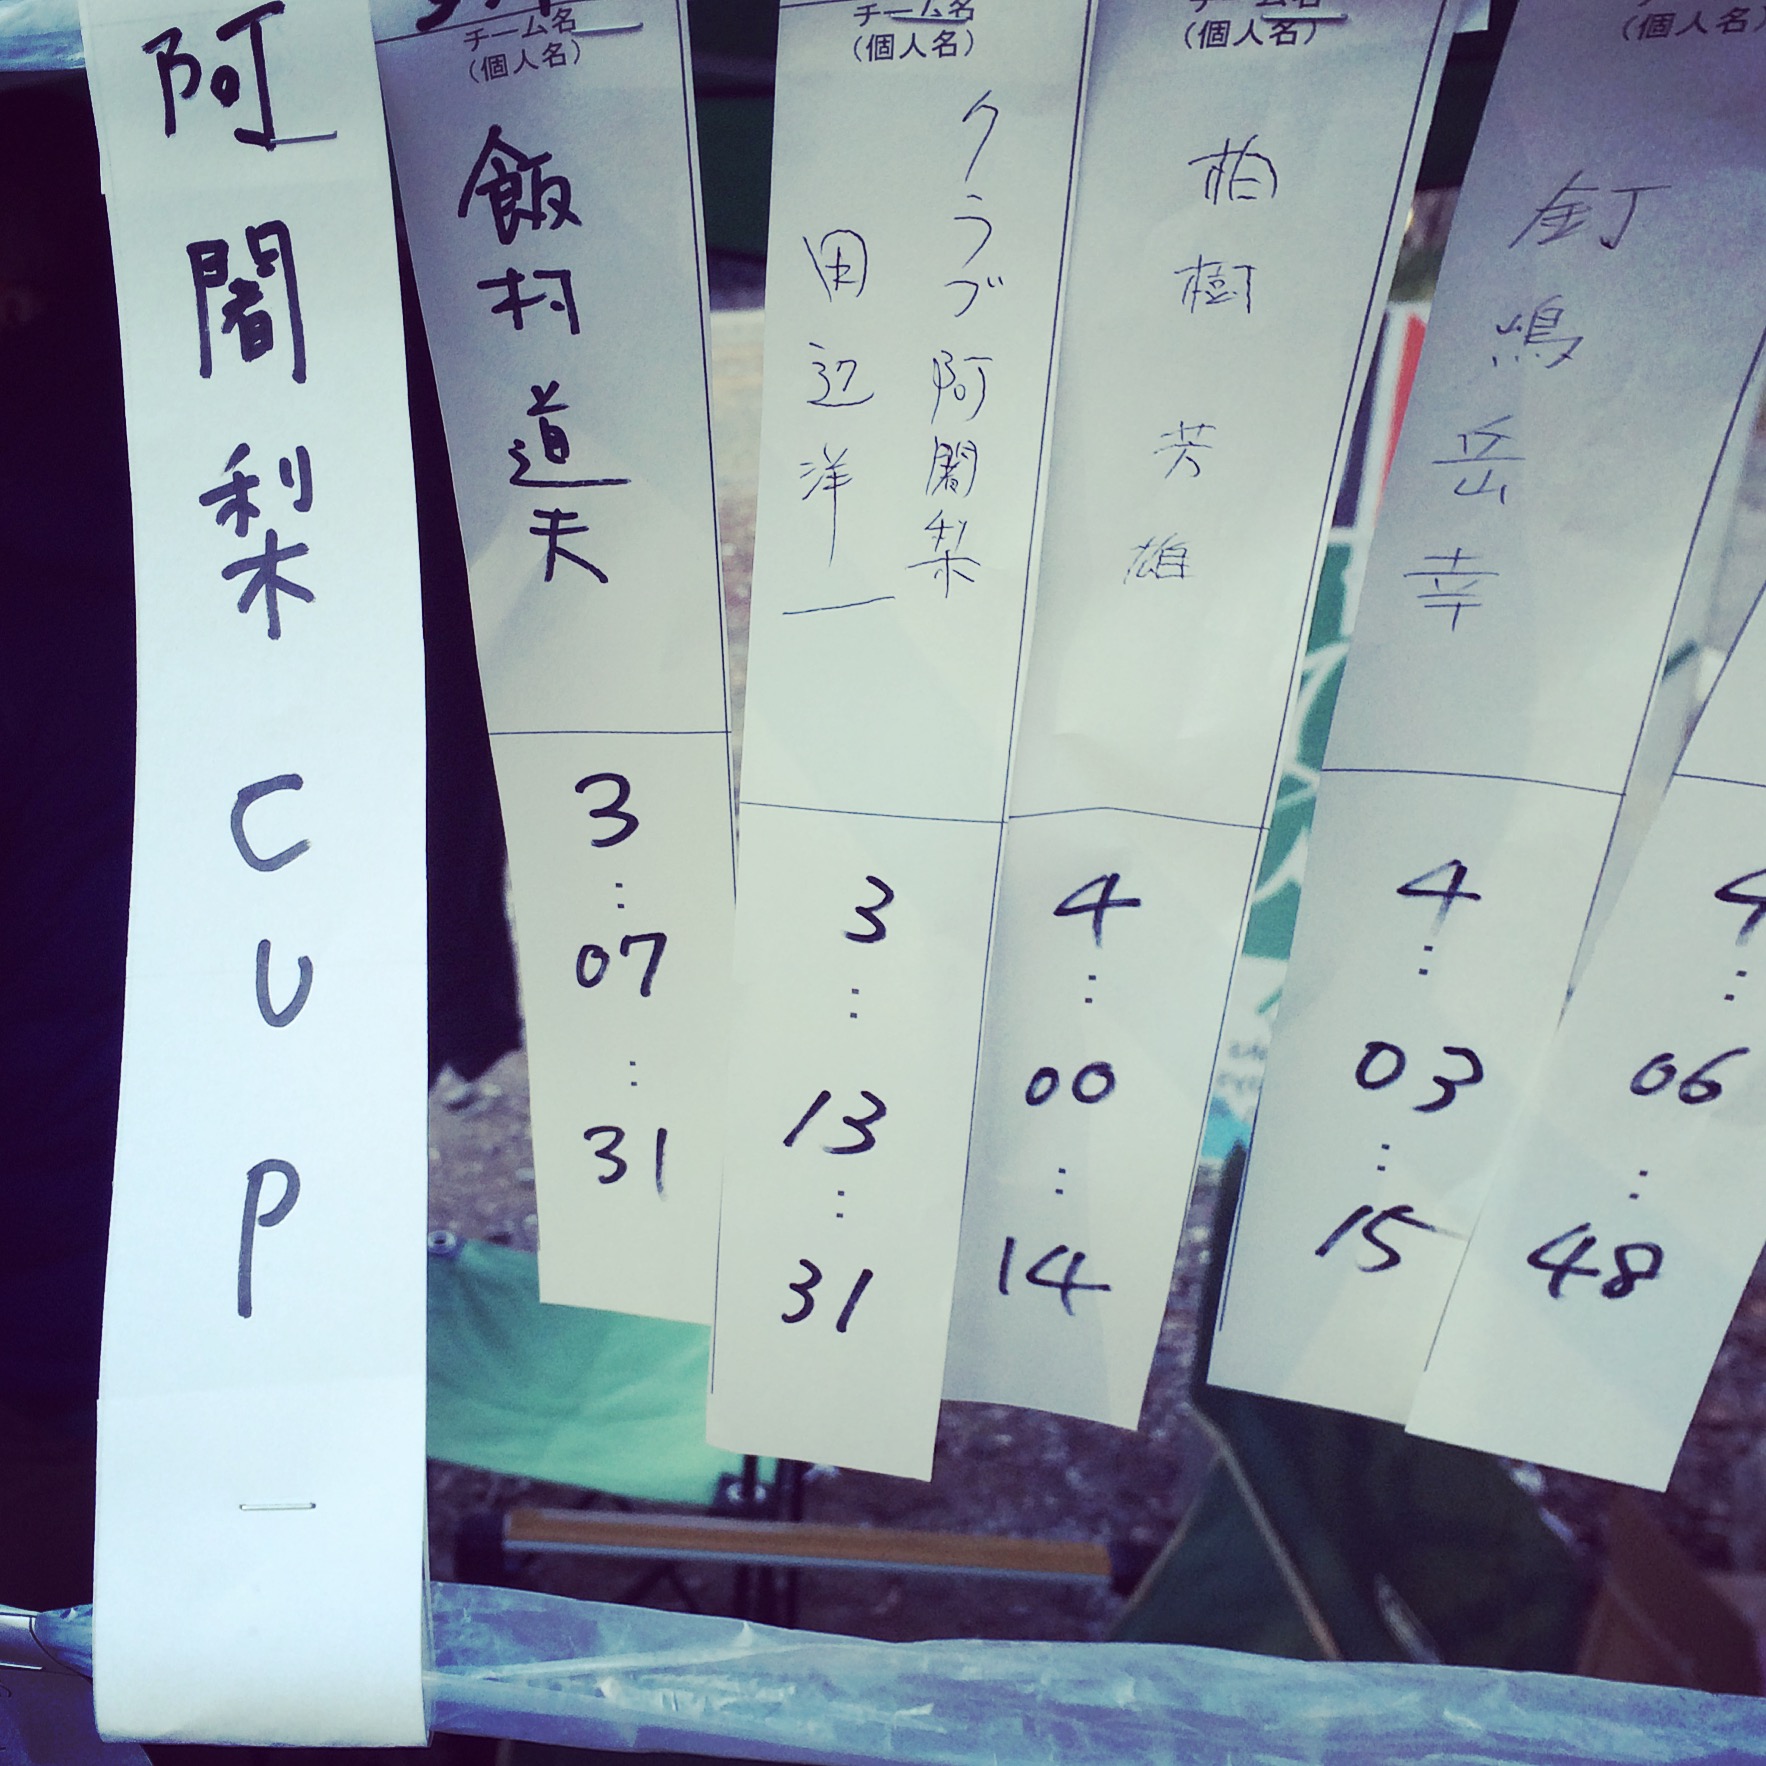 阿闍梨CUP
チーム名
(個人名)
飯村道夫
3:07:31
チーム名
(個人名)
クラブ阿闍梨
田辺洋一
3:13:31
チーム名
(個人名)
柏樹芳雄
4:00:14
(個人名)
釘嶋岳幸
4:03:15
4:06:48